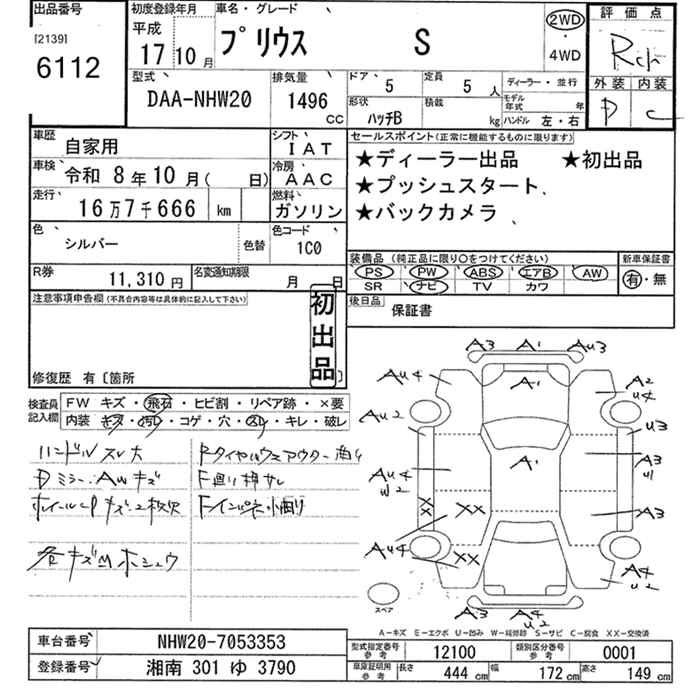 出品番号
[2139]
6112
初度登録年月
平成
17 10月
車名・グレード
プリウス S
2WD
・
4WD
評価点
外装 内装
D C
型式
DAA-NHW20
排気量
1496
CC
ドア
5
定員
5人
形状
ハッチB
積載
kg
ディーラー・並行
モデル年式 年
ハンドル 左・右
車歴
自家用
シフト
IAT
車検
令和 8年10月( 日)
冷房
AAC
走行
16万7千666 km
燃料
ガソリン
色
シルバー
色替
色コード
1C0
R券
11,310円
名変通知期限
月 日
セールスポイント(正常に機能するものに限ります)
★ディーラー出品 ★初出品
★プッシュスタート
★バックカメラ
装備品(純正品に限り○をつけてください)
新車保証書
PS PW ABS エアB AW
有・無
SR ナビ TV カワ
後日品
保証書
注意事項申告欄(不具合内容等は具体的に記入して下さい)
初出品
修復歴 有〔箇所 〕
検査員記入欄
FW キズ・飛石・ヒビ割・リペア跡・×要
内装・キズ・汚レ・コゲ・穴・スレ・キレ・破レ
ハンドルスレ大
Dミラー・AWキズ
各キズMホシュウ
A3 A1 AU3
AU4
A2
U4
AU2
U3
A1
A3
U1
AU4
U2
XX
XX
A3
AU4
XX
A4
U2
A3 A4
U2
スペア
A-キズ E-エクボ U-凹み W-補修跡 S-サビ C-腐食 XX-交換済
車台番号
NHW20-7053353
登録番号
湘南 301 ゆ 3790
型式指定番号
参考
12100
類別区分番号
参考
0001
車庫証明用
参考
長さ 444cm 幅 172cm 高さ 149cm